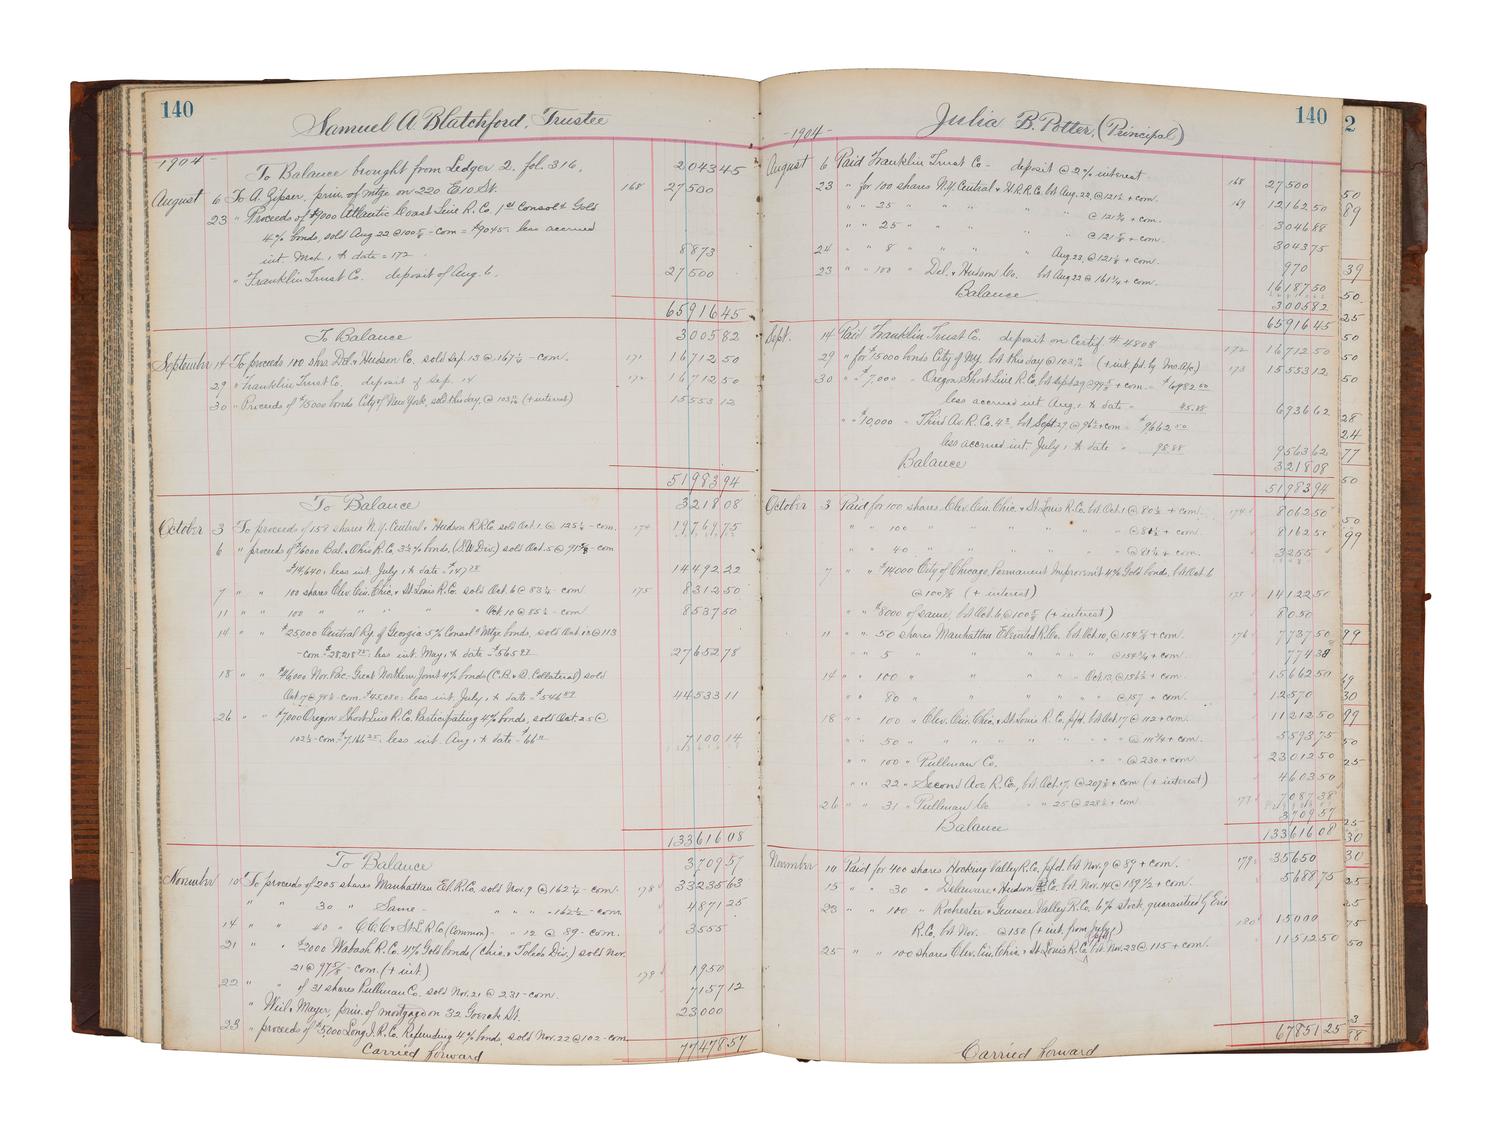 140
Samuel A. Blatchford, Trustee
1904
To Balance brought from Ledger 2, fol. 316. 2043 45
August 6 To A. Gipser, prin. of mtge on 220 E 10 St. 168 27500
23 " Proceeds of $9000 Atlantic Coast Line R. Co. 1st Consol'd Gold
4% bonds, sold Aug 22 @ - com = $9045 less accrued
int. Mch. 1 to date = 172 8873
" Franklin Trust Co. deposit of Aug. 6. 27500
65916 45
To Balance 3005 82
September 14 To proceeds 100 shs. Del. & Hudson Co. sold Sep. 13 @ - com. 171 16712 50
29 " Franklin Trust Co. deposit of Sep. 14 172 16712 50
30 " Proceeds of $15000 bonds City of New York, sold this day, @ (+ interest) 15553 12
51983 94
To Balance 3218 08
October 3 To proceeds of 158 shares N.Y. Central & Hudson R.R. Co. sold Oct. 1 @ - com. 174 19769 75
6 " proceeds of $16000 Bal. & Ohio R. Co. 3½% bonds, (S.W. Div.) sold Oct. 5 @ - com
$14,640, less int. July 1 to date = 14492 22
7 " " 100 shares Clev. Cin. Chic. & St Louis R. Co. sold Oct. 6 @ 83¼ - com 175 8312 50
11 " " 100 " " " " " Oct. 10 @ 85½ - com 8537 50
14 " " $25000 Central Ry. of Georgia 5% Consol'd Mtge bonds, sold Oct. 13 @ 113
- com = less int. May 1 to date = 27652 78
18 " " $46000 Nor. Pac. - Great Northern Joint 4% bonds (C.B. & Q. Collateral) sold
Oct. 17 @ - com. $45,080, less int. July 1 to date = 44533 11
26 " " $7000 Oregon Short Line R. Co. Participating 4% bonds, sold Oct. 25 @
102½ - com. less int. Aug. 1 to date = 7100 14
133616 08
To Balance 3709 57
November 10 To proceeds of 205 shares Manhattan El. R. Co. sold Nov. 9 @ - com. 178 33235 63
" " 30 " Same - " " " 162½ - com 4871 25
14 " " 40 " C.C.C. & St. L. R. Co (Common) - " 12 @ 89 - com. 3555
21 " " $2000 Wabash R. Co. 4% Gold bonds (Chic. & Toledo Div.) sold Nov.
21 @ 97⅝ - com. (+ int) 179 1950
22 " " of 31 shares Pullman Co. sold Nov. 21 @ 231 - com. 7157 12
" Weil & Mayer, prin. of mortgage on 32 Goerck St. 23000
23 " proceeds of $5,000 Long I. R. Co. Refunding 4% bonds, sold Nov. 22 @ 102 - com.
Carried forward 77478 57
140
Julia B. Potter, (Principal)
1904
August 6 Paid Franklin Trust Co - deposit @ 2% interest 168 27500
23 " for 100 shares N.Y. Central & H.R.R. Co. bt Aug. 22, @ + com. 169 12162 50
" " 25 " " " " @ + com. 3046 88
" " 25 " " " " @ + com. 3043 75
24 " " 8 " " " Aug. 23, @ + com. 970
23 " " 100 " Del. & Hudson Co. bt Aug 22 @ + com. 16187 50
Balance 3005 82
65916 45
Sept. 14 Paid Franklin Trust Co. deposit on Certif. # 4808 16712 50
29 " for $15000 bonds City of N.Y. bt this day @ (+ int. pd. by Inc. A/c) 172 15553 12
30 " " $7,000 " Oregon Short Line R. Co, bt Sept. 29 @ + com. = $6982.50 173
less accrued int Aug. 1 to date = 6936 62
" " $10,000 " Third Av. R. Co. 4s, bt Sept. 29 @ + com = $9662.50
less accrued int. July 1 to date = 98.88 9563 62
Balance 3218 08
51983 94
October 3 Paid for 100 shares Clev. Cin. Chic. & St Louis R. Co. bt Oct. 1 @ 80½ + com. 174 8062 50
" " 100 " " " " " @ 81½ + com. 8162 50
" " 40 " " " " " @ + com. 3255
7 " " $14000 City of Chicago, Permanent Improvm't 4% Gold bonds, bt Oct. 6
@ (+ interest) 175 14122 50
" " $8000 of same, bt Oct. 6, @ (+ interest) 8050
11 " " 50 shares Manhattan Elevated R. Co. bt Oct. 10, @ + com. 176 7737 50
" " 5 " " " " @ + com. 774 38
14 " " 100 " " " Oct. 13, @ 156½ + com. 15662 50
" " 80 " " " @ 157 + com. 12570
18 " " 100 " Clev. Cin. Chic. & St Louis R. Co. pfd. bt Oct. 17 @ 112 + com. 11212 50
" " 50 " " " " " " @ 111¾ + com. 5593 75
" " 100 " Pullman Co. " " " @ 230 + com. 23012 50
" " 22 " Second Ave. R. Co., bt Oct. 17, @ + com (+ interest) 4603 50
26 " " 31 " Pullman Co " " 25 @ 228½ + com 177 7087 38
Balance 3709 57
133616 08
November 10 Paid for 400 shares Hocking Valley R. Co. pfd. bt Nov. 9 @ 89 + com. 179 35650
15 " " 30 " Delaware & Hudson Co. bt Nov. 14 @ 189½ + com. 5688 75
23 " " 100 " Rochester & Genesee Valley R. Co. 6% stock, guaranteed by Erie
R. Co. bt Nov. @ 150 (+ int. from July 1) 180 15000
25 " " 100 shares Clev. Cin. Chic. & St. Louis R. Co. pfd bt Nov. 23 @ 115 + com. 11512 50
67851 25
Carried forward
2
50
89
39
50
25
50
50
50
28
24
77
50
50
99
99
49
30
99
50
25
25
30
30
25
25
75
50